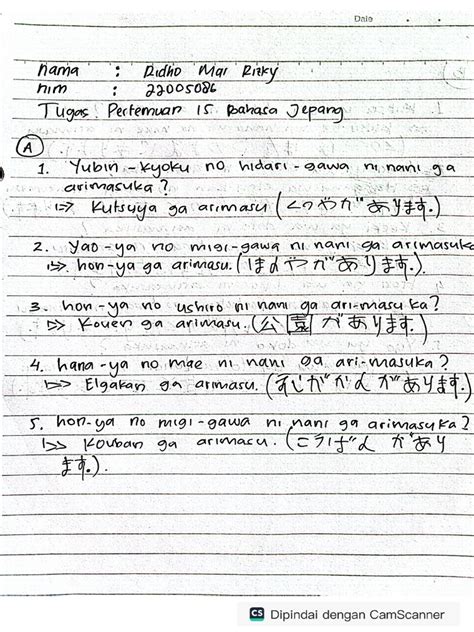 Date
nama : Ridho Mar Rizky
nim : 22005086
Tugas Pertemuan 15 Bahasa Jepang
A
1. Yubin-kyoku no hidari-gawa ni nani ga
arimasuka?
Kutsuya ga arimasu (くつやが あります.)
2. Yao-ya no migi-gawa ni nani ga arimasuka
hon-ya ga arimasu. (ほんやが あります.)
3. hon-ya no ushiro ni nani ga ari-masuka?
Kouen ga arimasu. (公園 が あります.)
4. hana-ya no mae ni nani ga ari-masuka?
Eigakan ga arimasu. (がかん が あります.)
5. hon-ya no migi-gawa ni nani ga arimasuka?
Kouban ga arimasu. (こうばん が あり
ます.).
CS Dipindai dengan CamScanner